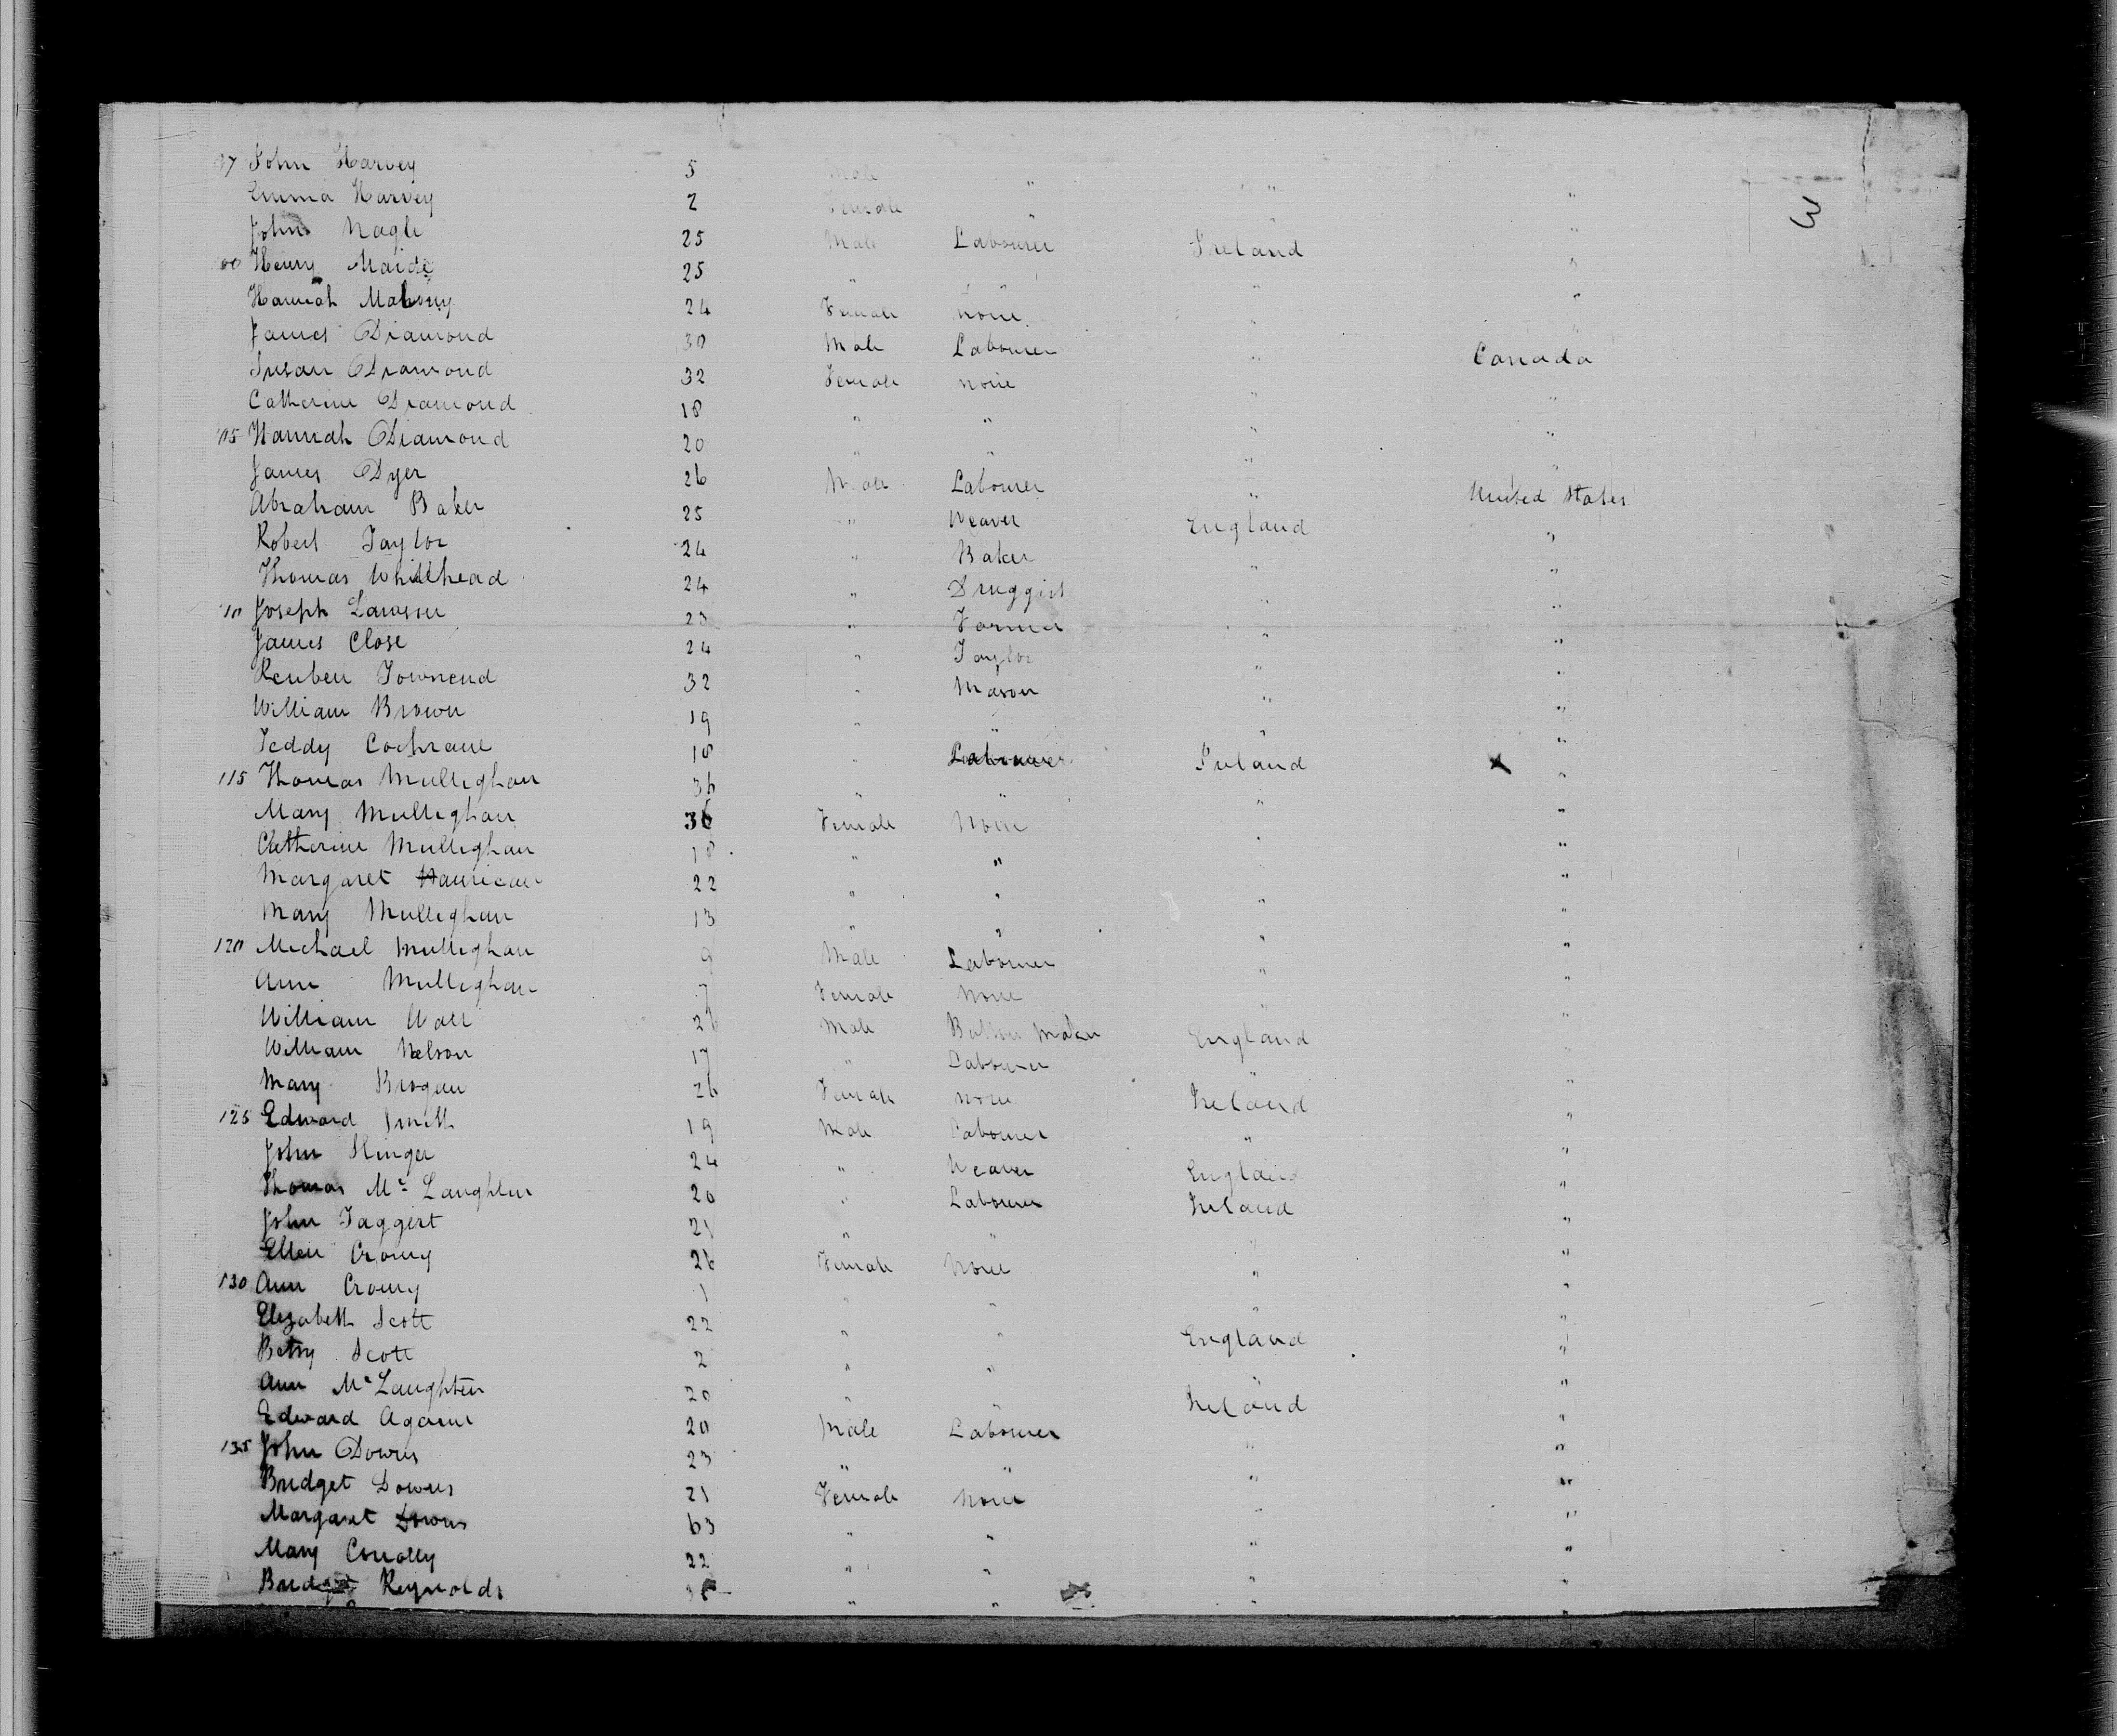 3
97 John Harvey 5 Male " " "
Emma Harvey 2 Female " " "
John Nagle 25 Male Labourer Ireland "
00 Henry 25 " " " "
Hannah Mahony 24 Female None " "
James Diamond 30 Male Labourer " Canada
Susan Diamond 32 Female None " "
Catherine Diamond 18 " " " "
105 Hannah Diamond 20 " " " "
James Dyer 26 Male Labourer " United States
Abraham Baker 25 " Weaver England "
Robert Taylor 24 " Baker " "
Thomas Whitehead 24 " Druggist " "
110 Joseph Lawson 23 " Farmer " "
James Close 24 " Taylor " "
Reuben Townend 32 " Mason " "
William Brown 19 " " " "
Teddy Cochrane 18 " Labourer Ireland x "
115 Thomas Mullighan 36 " " " "
Mary Mullighan 36 Female None " "
Catherine Mullighan 18 " " " "
Margaret 22 " " " "
Mary Mullighan 13 " " " "
120 Michael Mullighan 9 Male Labourer " "
Ann Mullighan 7 Female None " "
William Male Button Maker England "
William Nelson 17 " Labourer " "
Mary Brogan 26 Female None Ireland "
125 Edward Smith 19 Male Labourer " "
John Slinger 24 " Weaver England "
Thomas Mc Laughlin 20 " Labourer Ireland "
John Taggert 21 " " " "
Ellen Crony 26 Female None " "
130 Ann Crony 1 " " " "
Elizabeth Scott 22 " " England "
Betsy Scott 2 " " " "
Ann McLaughten 20 " " Ireland "
Edward 20 Male Labourer " "
135 John Downs 23 " " " "
Bridget Downs 21 Female None " "
Margaret Downs 63 " " " "
Mary Conolly 22 " " " "
Bridget Reynolds " " " "